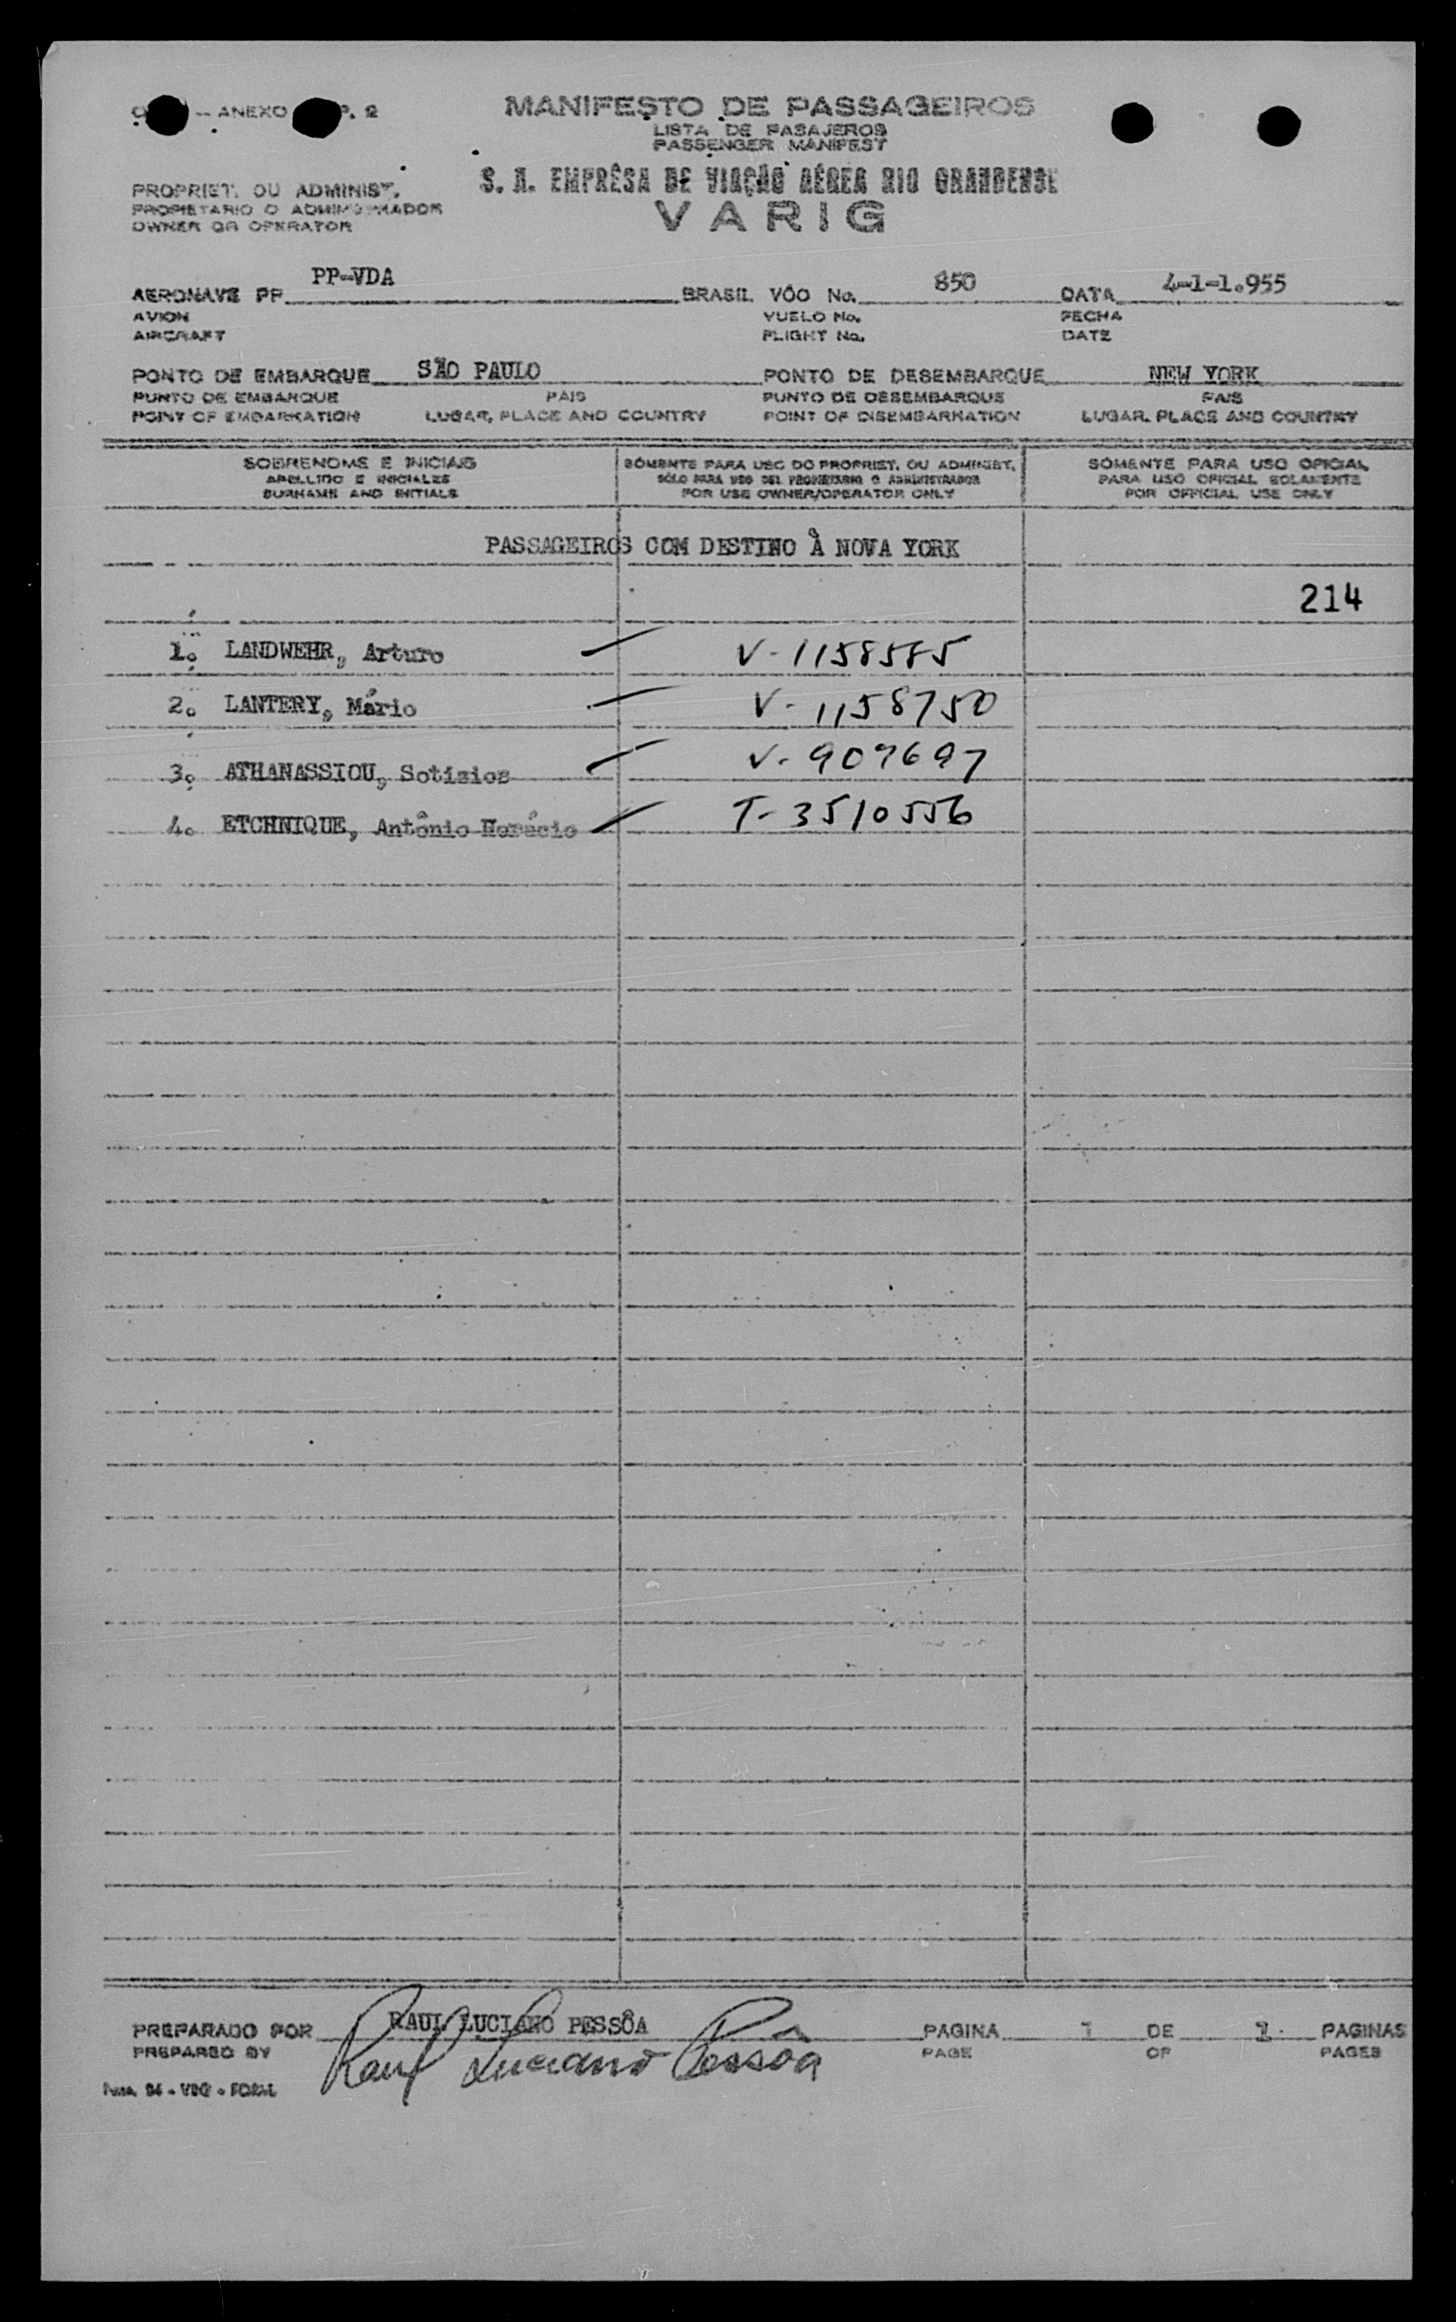 -- ANEXO P. 2
MANIFESTO DE PASSAGEIROS
LISTA DE PASAJEROS
PASSENGER MANIFEST
S. A. EMPRÊSA DE VIAÇÃO AÉREA RIO GRANDENSE
VARIG
PROPRIET. OU ADMINIST.
PROPIETARIO O ADMINISTRADOR
OWNER OR OPERATOR
AERONAVE PP PP-VDA BRASIL VÔO No. 850 DATA 4-1-1.955
AVION VUELO No. FECHA
AIRCRAFT FLIGHT No. DATE
PONTO DE EMBARQUE SÃO PAULO PONTO DE DESEMBARQUE NEW YORK
PUNTO DE EMBARQUE PAIS PUNTO DE DESEMBARQUE PAIS
POINT OF EMBARKATION LUGAR, PLACE AND COUNTRY POINT OF DISEMBARKATION LUGAR, PLACE AND COUNTRY
SOBRENOME E INICIAIS SÒMENTE PARA USO DO PROPRIET. OU ADMINIST. SÒMENTE PARA USO OFICIAL
APELLIDO E INICIALES SÓLO PARA USO DEL PROPIETARIO O ADMINISTRADOR PARA USO OFICIAL SOLAMENTE
SURNAME AND INITIALS FOR USE OWNER/OPERATOR ONLY FOR OFFICIAL USE ONLY
PASSAGEIROS COM DESTINO À NOVA YORK
214
1. LANDWEHR, Arturo V-1158585
2. LANTERY, Mário V-1158750
3. ATHANASSIOU, V-907697
4. ETCHNIQUE, Antônio Horácio T-3510556
PREPARADO POR RAUL LUCIANO PESSÔA PAGINA 1 DE 1 PAGINAS
PREPARED BY Raul Luciano Pessôa PAGE OF PAGES